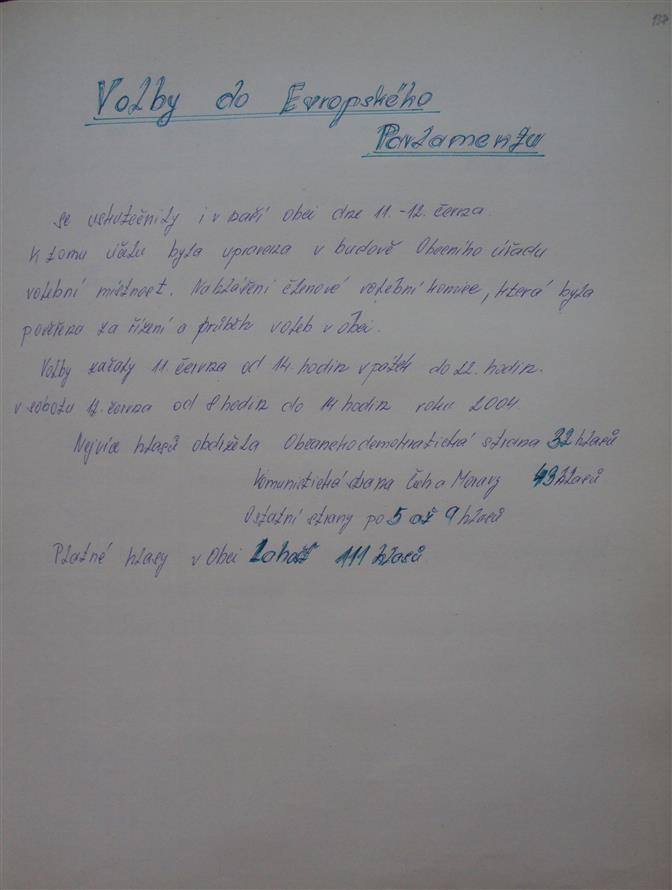 137
Volby do Evropského
Parlamentu
se uskutečnily i v naší obci dne 11.-12. června.
K tomu účelu byla upravena v budově Obecního úřadu
volební místnost. Nahlášeni členové volební komise, která byla
pověřena za řízení a průběh voleb v obci.
Volby začaly 11 června od 14. hodin v pátek do 22. hodin.
v sobotu 12. června od 8 hodin do 14 hodin roku 2004.
Nejvíce hlasů obdržela Občanskodemokratická strana 32 hlasů
Komunistická strana Čech a Moravy 43 hlasů
Ostatní strany po 5 až 9 hlasů
Platné hlasy v Obci 111 hlasů